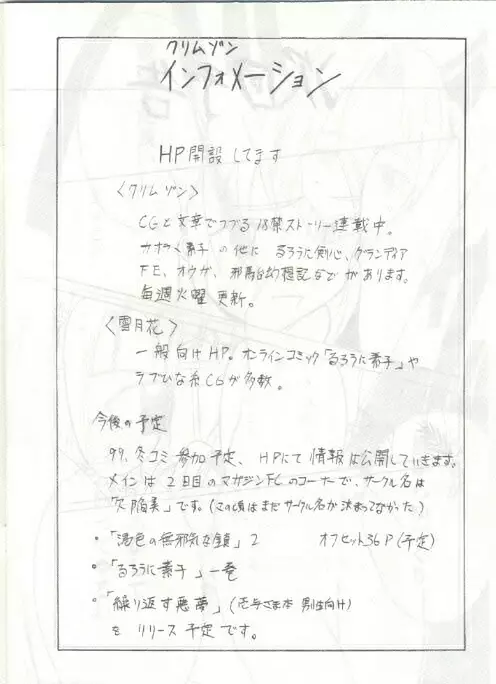 クリムゾン
インフォメーション
HP開設してます
〈クリムゾン〉
CGと文章でつづる18禁ストーリー連載中。
カオラ、素子の他に るろうに剣心、グランディア
FE、オウガ、邪馬台幻想記などがあります。
毎週火曜更新。
〈雪月花〉
一般向けHP。オンラインコミック「るろうに素子」や
ラブひな系CGが多数。
今後の予定
99,冬コミ参加予定、HPにて情報は公開していきます。
メインは2日目のマガジンFCのコーナーで、サークル名は
「欠陥美」です。(この頃はまだサークル名が決まってなかった)
・「褐色の無邪気な鎖」2 オフセット36P(予定)
・「るろうに素子」一巻
・「繰り返す悪夢」(壱与さま本 男性向け)
を リリース予定です。